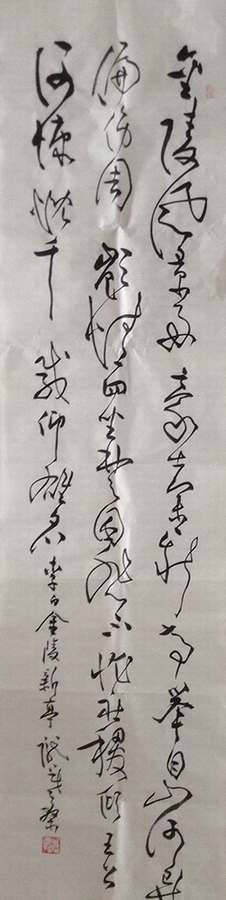 金陵风景好豪士集新亭举目山河异
偏伤周顗情四坐楚囚悲不忧社稷倾王公
何慷慨千载仰雄名李白金陵新亭